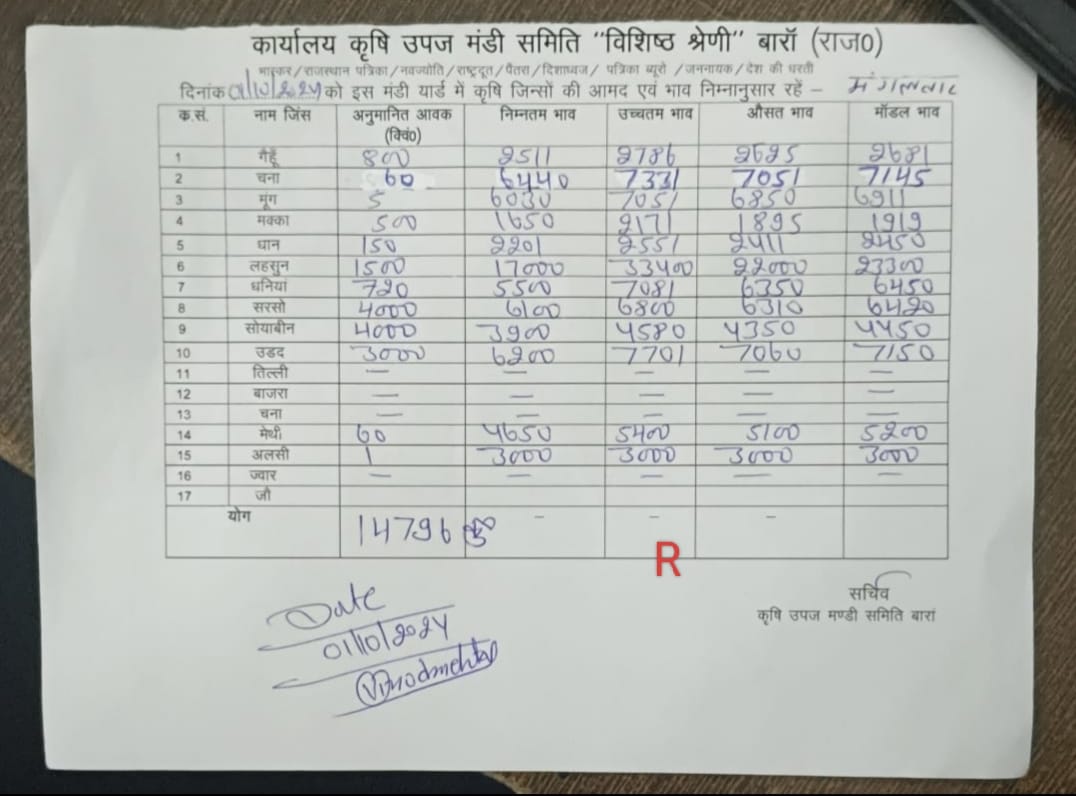 कार्यालय कृषि उपज मंडी समिति "विशिष्ठ श्रेणी" बारॉ (राज0)
भास्कर/राजस्थान पत्रिका/नवज्योति/राष्ट्रदूत/पैतरा/दिशाध्वज/ पत्रिका ब्यूरो /जननायक/देश की धरती
दिनांक 01/10/2024 को इस मंडी यार्ड में कृषि जिन्सों की आमद एवं भाव निम्नानुसार रहें – मंगलवार
क.सं. नाम जिंस अनुमानित आवक (क्विं0) निम्नतम भाव उच्चतम भाव औसत भाव मॉडल भाव
1 गेहूँ 800 2511 2786 2625 2681
2 चना 60 6440 7331 7051 7145
3 मूंग 5 6030 7051 6850 6911
4 मक्का 500 1650 2171 1895 1919
5 धान 150 2201 2551 2411 2450
6 लहसुन 1500 17000 33400 22000 23300
7 धनियां 720 5500 7081 6350 6450
8 सरसो 4000 6100 6800 6310 6420
9 सोयाबीन 4000 3900 4580 4350 4450
10 उडद 3000 6200 7701 7060 7150
11 तिल्ली — — — — —
12 बाजरा — — — — —
13 चना — — — — —
14 मेथी 60 4650 5400 5100 5200
15 अलसी 1 3000 3000 3000 3000
16 ज्वार — — — — —
17 जौ
योग 14796 कु - - -
R
सचिव
कृषि उपज मण्डी समिति बारां
Date
01/10/2024
Vinodmehta